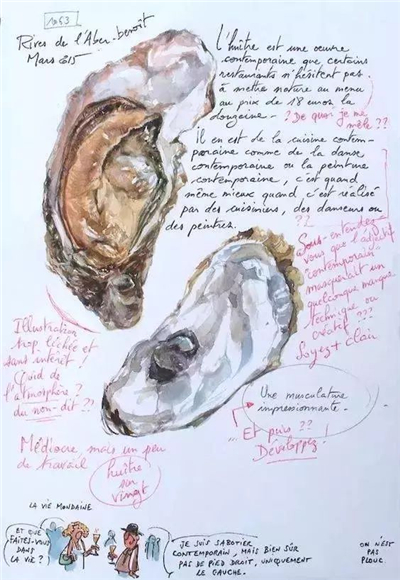 1053
Rives de l'Aber-benoît
Mars 2015
L'huître est une œuvre
contemporaine que certains
restaurants n'hésitent pas
à mettre nature au menu
au prix de 18 euros la
douzaine - ? De quoi je me
mêle ??
Il en est de la cuisine contem-
poraine comme de la danse
contemporaine ou la peinture
contemporaine, c'est quand
même mieux quand c'est réalisé
par des cuisiniers, des danseurs ou
des peintres.
??
Sous-entendez
vous que l'adjectif
contemporain
masquerait un
quelconque manque
technique ou
créatif ???
Soyez + clair
Illustration
trop léchée et
sans intérêt !
Quid de
l'atmosphère ?
du non-dit ??
Une musculature
impressionnante.
... Et puis ??
Développez !
Médiocre mais un peu
de travail
huître
sur
vingt
LA VIE MONDAINE
ET QUE
FAITES-VOUS
DANS
LA VIE ?
JE SUIS SABOTIER
CONTEMPORAIN, MAIS BIEN SÛR
PAS DE PIED DROIT, UNIQUEMENT
LE GAUCHE.
ON N'EST
PAS
PLOUC.